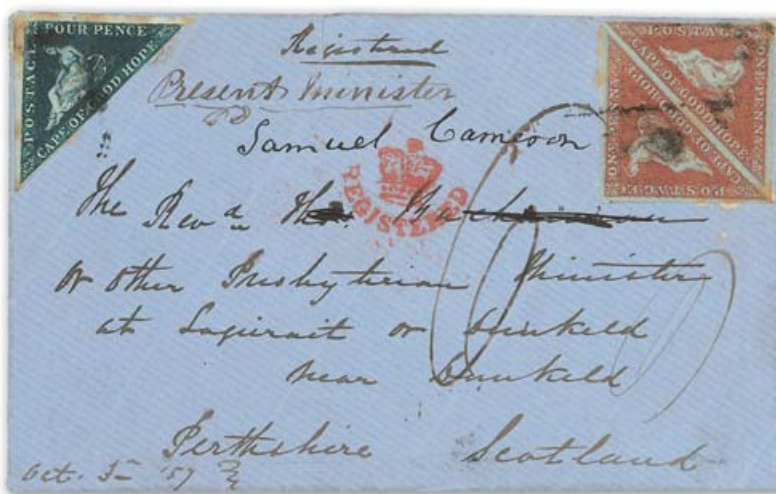 POSTAGE FOUR PENCE CAPE OF GOOD HOPE
POSTAGE ONE PENNY CAPE OF GOOD HOPE
POSTAGE ONE PENNY CAPE OF GOOD HOPE
Registered
Present Minister
Samuel Cameron
REGISTERED
The Revd
or other Presbyterian Minister
at Logierait or Dunkeld
near Dunkeld
Perthshire Scotland
Oct. 5 '57